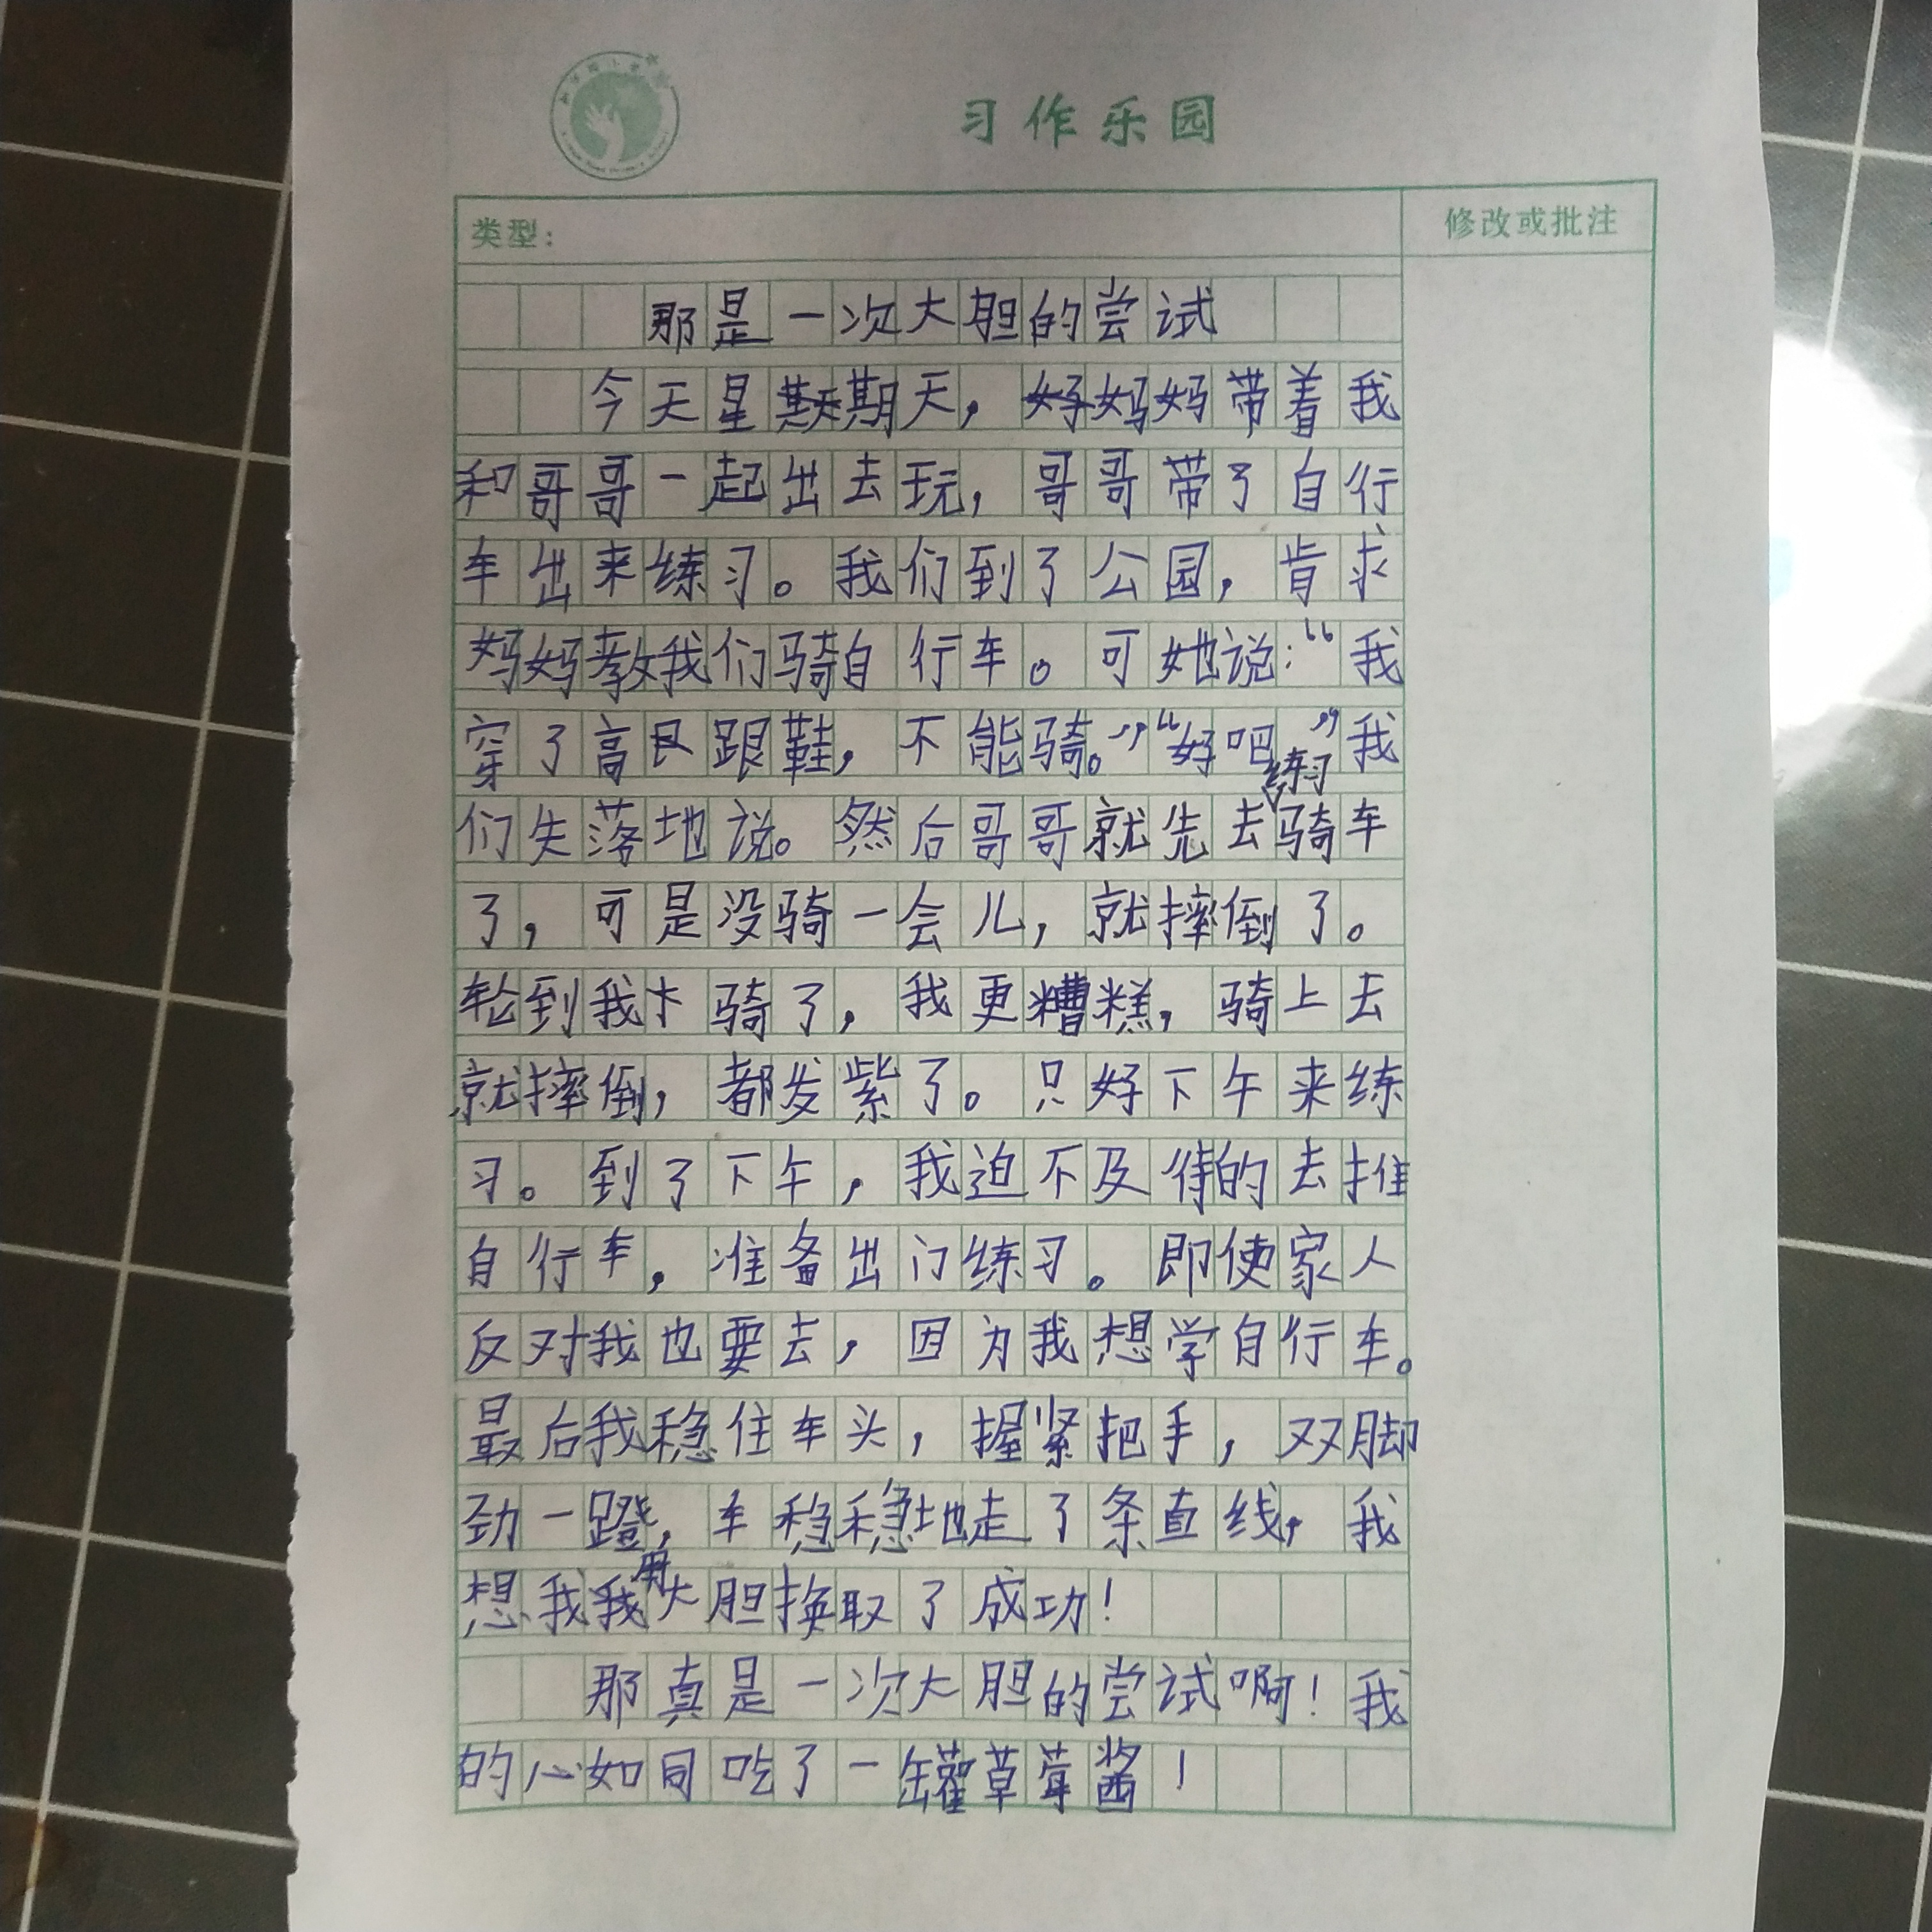 习作乐园
类型：
修改或批注
那是一次大胆的尝试
今天星期天，妈妈带着我
和哥哥一起出去玩，哥哥带了自行
车出来练习。我们到了公园，肯求
妈妈教我们骑自行车。可她说：“我
穿了高艮跟鞋，不能骑。”“好吧，”我
们失落地说。然后哥哥就先去练习骑车
了，可是没骑一会儿，就摔倒了。
轮到我骑了，我更糟糕，骑上去
就摔倒，都发紫了。只好下午来练
习。到了下午，我迫不及待的去推
自行车，准备出门练习。即使家人
反对我也要去，因为我想学自行车。
最后我稳住车头，握紧把手，双脚
劲一蹬，车稳稳地走了条直线，我
想我我用大胆换取了成功！
那真是一次大胆的尝试啊！我
的心如同吃了一罐草莓酱！